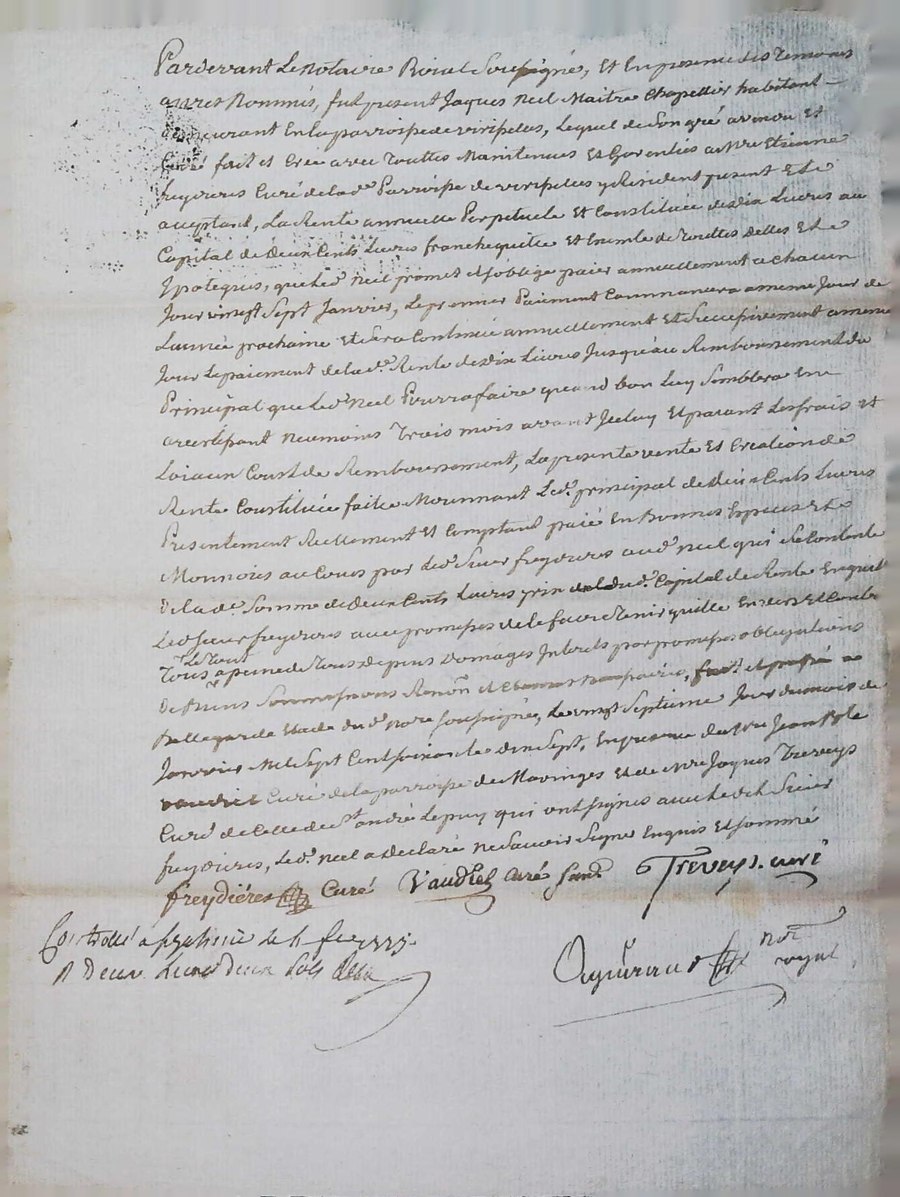 Pardevant Le Notaire Roial Soussigné, Et En presence des Temoins
apres Nommés, fut present Jaques Neel Maitre Chapellier habitant
demeurant En la parroisse de viripelles, Lequel de Son gré a vendu Et
Creé fait et Creé avec Touttes Maintenues Et Garenties a Mre Etienne
freydieres Curé de la de Parroisse de viripelles y Residant present Et
acceptant, La Rente annuelle Perpetuele Et Constituée de dix Livres au
Capital de Deux Cents Livres franche quitte Et Exemte de Touttes Dettes Et
Ypoteques, que led Neel promet et s'oblige paier annuellement a chacun
Jour vingt Sept Janvier, Le premier Paiment Commancera a meme Jour de
L'année prochaine Et Sera Continué annuellement Et Successivement a meme
Jour Le paiement de la de Rente de dix Livres Jusqu'au Remboursement du
Principal que led Neel Pourra faire quand bon Luy Semblera En
avertissant Neumoins Trois mois avant Jceluy Et paiant Les frais Et
Loiaux Coust de Remboursement, La presente vente Et Creation de
Rente Constituée faite Moiennant Led principal de Deux Cents Livres
Presentement Reellement Et Comptant paié En Bonnes Especes Et
Monnoies au Cours par led Sieur freydieres aud Neel qui Se Contente
De la de Somme de Deux Cents Livres prix dud Capital de Rente En quitte
Led Sieur freydieres avec promesses de le faire Tenir quitte Envers Et Contre
Tous Le Tout a peine de Tous Depens Domages Interets par promesses obligations
De Biens
Bellegarde Etude du d Nore Soussigné, Le vingt Septieme Jour du mois de
Janvier Mil Sept Cent Soixante dix Sept, En presence de Mre Jean
Vaudiel Curé de la parroisse de Maringes Et de Mre Jaques Treveys
Curé de Celle de St andré Le puy qui ont Signés avec Led Sieur
freydieres, Led Neel a Declaré ne Savoir Signé Enquis Et Sommé
freydiéres Curé Vaudiel Curé Treveys. curé
Controllé a le fev 1777.
R Deux Livres Deux Sols
Nore
royal